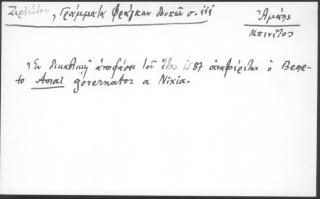 Ζερλέντου, Γράμματα Φράγκων Δουκῶν σ. 111
Ἀμάης
Μπενέτος
Ἐν δικαστικῇ ἀποφάσει τοῦ ἔτους 1587 ἀναφέρεται ὁ Bene-
to Amai governator a Nixia.